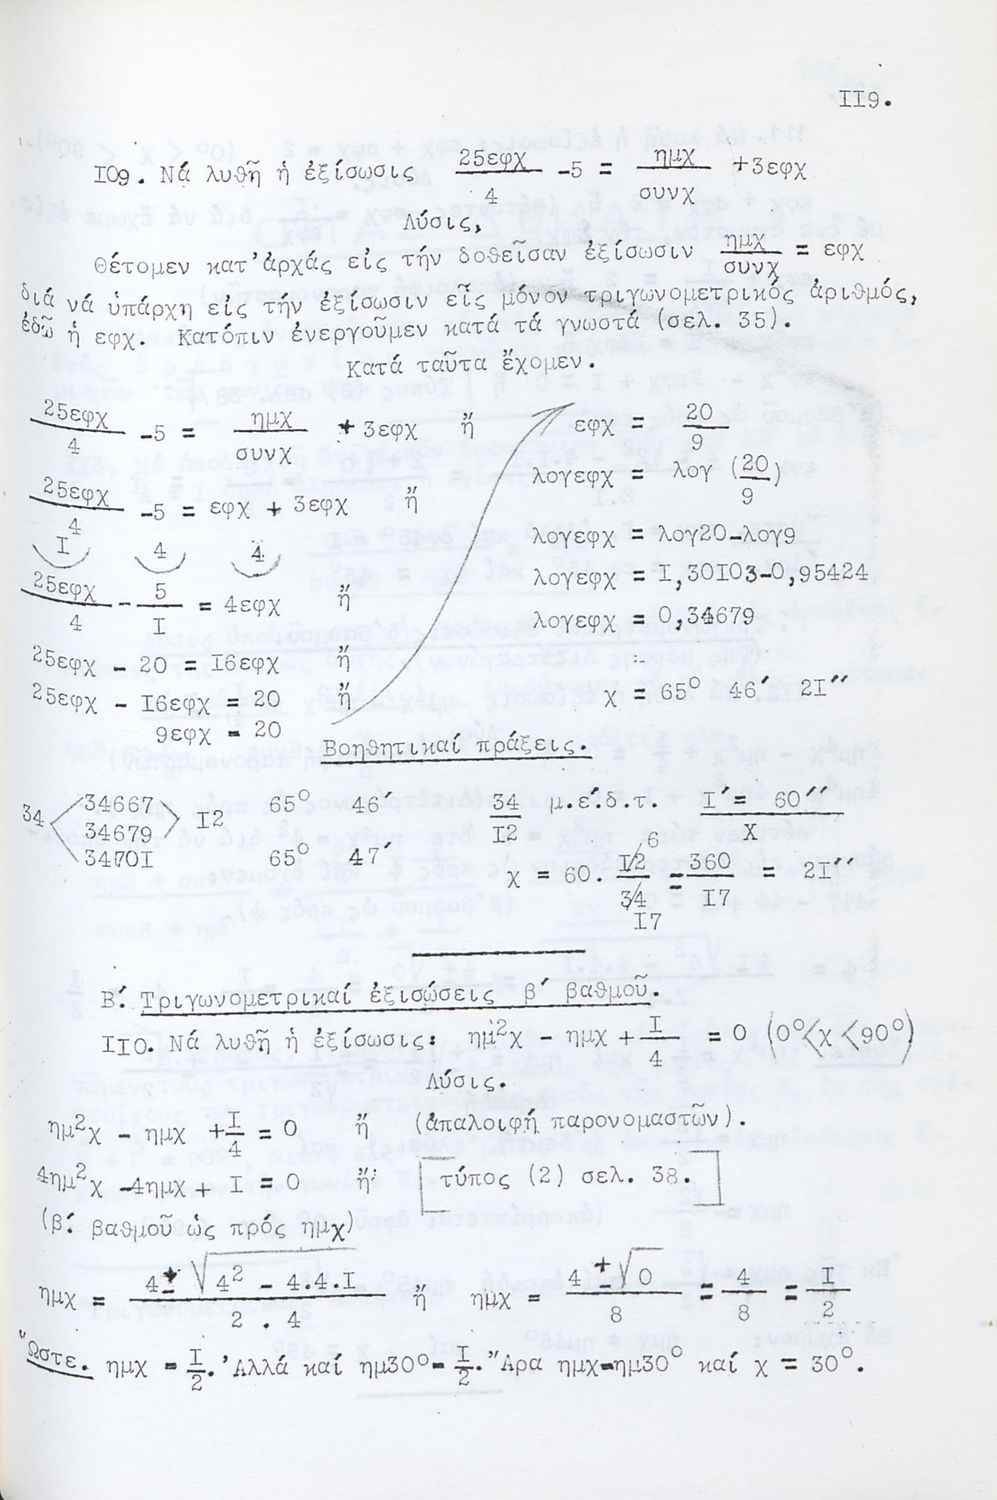 II9.
IO9. Νά λυθῆ ἡ ἐξίσωσις 25εφχ/4 -5 = ημχ/συνχ +3εφχ
Λύσις,
Θέτομεν κατ'ἀρχάς εἰς τήν δοθεῖσαν ἐξίσωσιν ημχ/συνχ = εφχ
διά νά ὑπάρχη εἰς τήν ἐξίσωσιν εἷς μόνον τριγωνομετρικός ἀριθμός,
ἐδῶ ἡ εφχ. Κατόπιν ἐνεργοῦμεν κατά τά γνωστά (σελ. 35).
Κατά ταῦτα ἔχομεν.
25εφχ/4 -5 = ημχ/συνχ + 3εφχ ἤ
25εφχ/4 -5 = εφχ + 3εφχ ἤ
I 4 4
25εφχ/4 - 5/I = 4εφχ ἤ
25εφχ - 20 = I6εφχ ἤ
25εφχ - I6εφχ = 20 ἤ
9εφχ = 20
εφχ = 20/9
λογεφχ = λογ (20/9)
λογεφχ = λογ20-λογ9
λογεφχ = I,30I03-0,95424
λογεφχ = 0,34679
χ = 65° 46′ 2I′′
Βοηθητικαί πράξεις.
34 34667 I2 65° 46′
34679
3470I 65° 47′
34/I2 μ.ε.δ.τ. I′= 60′′/Χ
χ = 60. I2/34 = 360/I7 = 2I′′
6
I7
Β΄. Τριγωνομετρικαί ἐξισώσεις β΄ βαθμοῦ.
IIO. Νά λυθῆ ἡ ἐξίσωσις: ημ²χ - ημχ + I/4 = 0 (0°<χ<90°)
Λύσις.
ημ²χ - ημχ + I/4 = 0 ἤ (ἀπαλοιφή παρονομαστῶν).
4ημ²χ -4ημχ+ I = 0 ἤ: τύπος (2) σελ. 38.
(β΄ βαθμοῦ ὡς πρός ημχ)
ημχ = 4± √4² - 4.4.I / 2 . 4 ἤ ημχ = 4 + √0 / 8 = 4/8 = I/2
Ὥστε. ημχ = I/2. Ἀλλά καί ημ30°= I/2. Ἄρα ημχ=ημ30° καί χ = 30°.